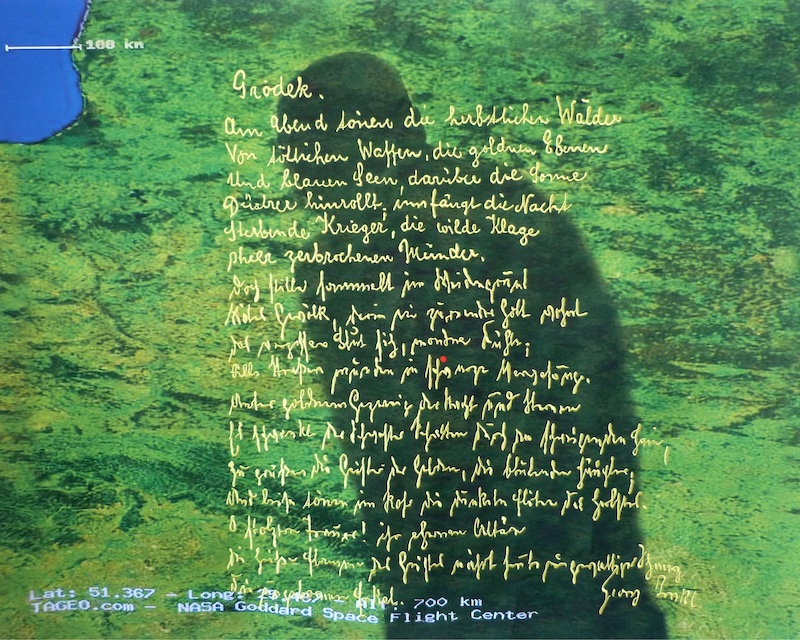 100 km
Grodek.
Am Abend tönen die herbstlichen Wälder
Von tötlichen Waffen, die goldnen Ebenen
Und blauen Seen, darüber die Sonne
Düstrer hinrollt; umfängt die Nacht
Sterbende Krieger, die wilde Klage
Ihrer zerbrochenen Münder.
Doch stille sammelt im Weidengrund
Rotes Gewölk, darin ein zürnender Gott wohnt
Das vergossne Blut sich, mondne Kühle;
Alle Straßen münden in schwarze Verwesung.
Unter goldnem Gezweig der Nacht und Sternen
Es schwankt der Schwester Schatten durch den schweigenden Hain,
Zu grüßen die Geister der Helden, die blutenden Häupter;
Und leise tönen im Rohr die dunkeln Flöten des Herbstes.
O stolzere Trauer! ihr ehernen Altäre
Die heiße Flamme des Geistes nährt heute ein gewaltiger Schmerz
Die ungebornen Enkel.
Georg Trakl
Lat: 51.367 - Long: - Alt: 700 km
TAGEO.com - NASA Goddard Space Flight Center